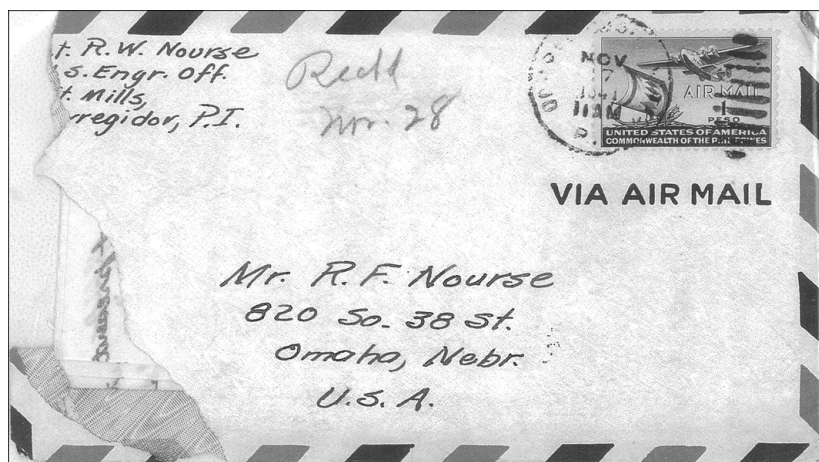 t. R.W. Nourse
s. Engr. Off.
t. Mills,
rregidor, P.I.
Recd
Nov. 28
NOV
7
1941
11 AM
P.I.
AIR MAIL
1
PESO
UNITED STATES OF AMERICA
COMMONWEALTH OF THE PHILIPPINES
VIA AIR MAIL
Mr. R.F. Nourse
820 So. 38 St.
Omaha, Nebr.
U.S.A.